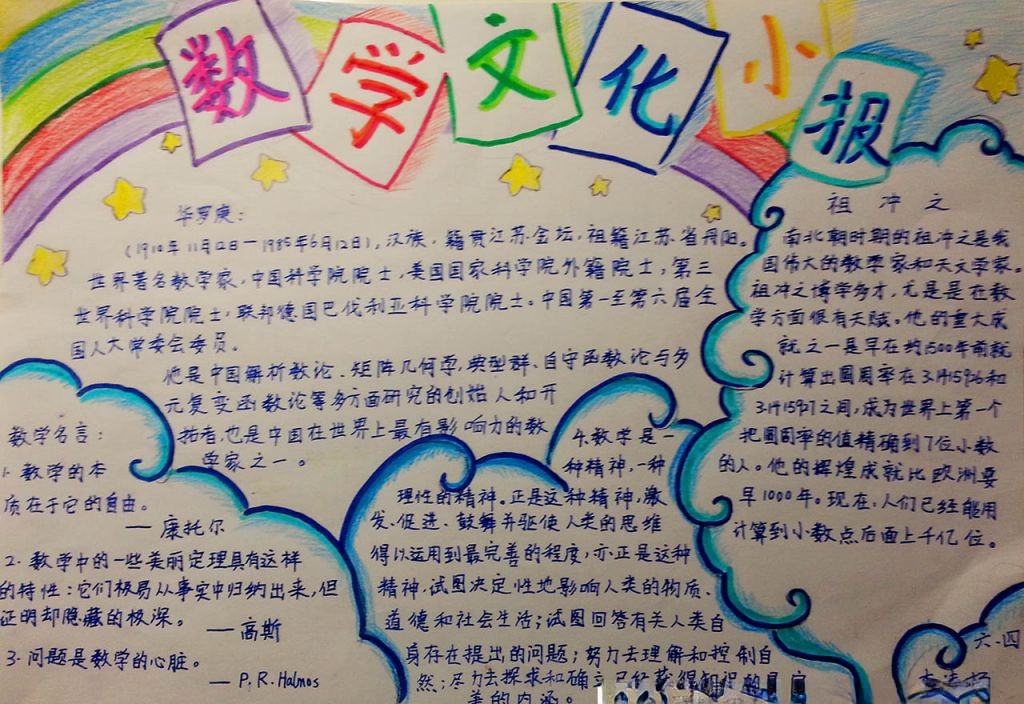 数学文化小报
华罗庚：
（1910年11月12日—1985年6月12日），汉族，籍贯江苏金坛，祖籍江苏省丹阳。
世界著名数学家，中国科学院院士，美国国家科学院外籍院士，第三
世界科学院院士，联邦德国巴伐利亚科学院院士。中国第一至第六届全
国人大常委会委员。
他是中国解析数论、矩阵几何学，典型群、自守函数论与多
元复变函数论等多方面研究的创始人和开
拓者，也是中国在世界上最有影响力的数
学家之一。
数学名言：
1.数学的本
质在于它的自由。
—康托尔
2.数学中的一些美丽定理具有这样
的特性：它们极易从事实中归纳出来，但
证明却隐藏的极深。
—高斯
3.问题是数学的心脏。
—P.R.Halmos
4.数学是一
种精神，一种
理性的精神。正是这种精神，激
发、促进、鼓舞并驱使人类的思维
得以运用到最完善的程度，亦正是这种
精神，试图决定性地影响人类的物质、
道德和社会生活；试图回答有关人类自
身存在提出的问题；努力去理解和控制自
然；尽力去探求和确立已经获得知识的
善的内涵。
祖冲之
南北朝时期的祖冲之是我
国伟大的数学家和天文学家。
祖冲之博学多才，尤是是在数
学方面很有天赋。他的重大成
就之一是早在约1500年前就
计算出圆周率在3.1415926和
3.1415927之间，成为世界上第一个
把圆周率的值精确到7位小数
的人。他的辉煌成就比欧洲要
早1000年。现在，人们已经能用
计算到小数点后面上千亿位。
六.四